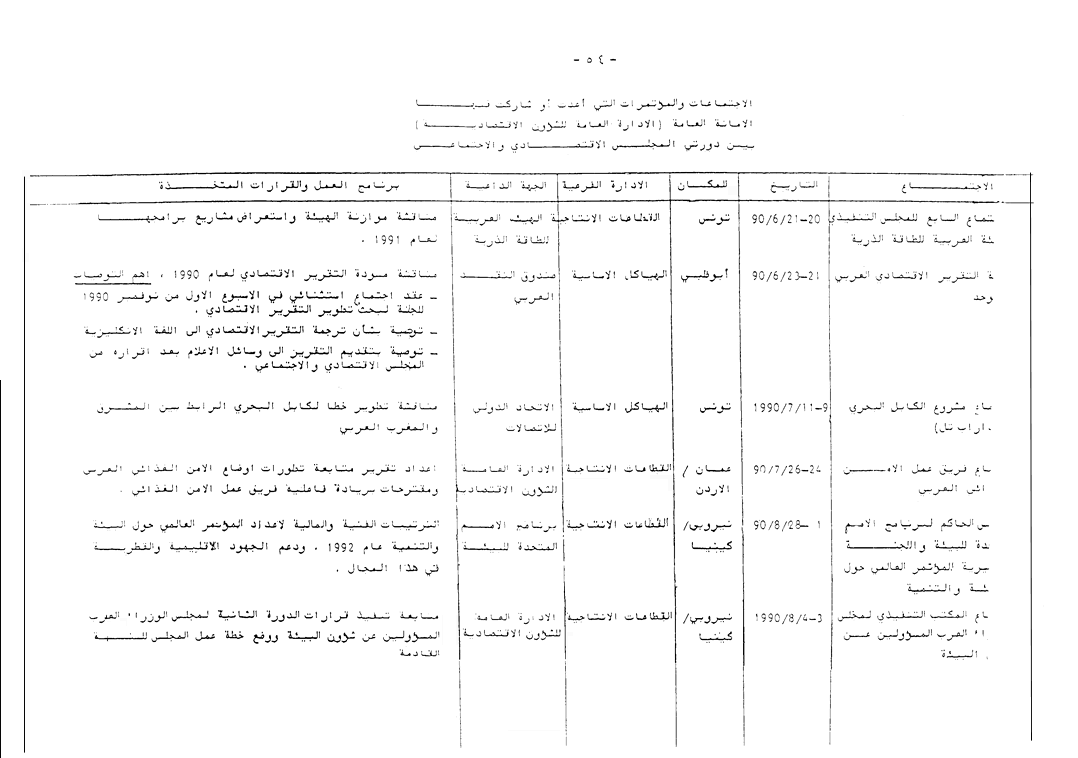 - ٥٤ -
الاجتماعات والمؤتمرات التي أعدت أو شاركت بهــــا
الامانة العامة (الادارة العامة للشؤون الاقتصاديــــة)
بيـن دورتي المجلـس الاقتصـــادي والاجتماعـــي
الاجتمــــــــاع التاريـخ المكـــان الادارة الفرعية الجهة الداعيـة برنامج العمل والقرارات المتخــــذة
تماع السابع للمجلس التنفيذي 20–90/6/21 تونس القطاعات الانتاجية الهيئة العربيـــة مناقشة موازنة الهيئة واستعراض مشاريع برامجهـــا
ئة العربية للطاقة الذرية للطاقة الذرية لعام 1991 .
ة التقرير الاقتصادي العربي 21–90/6/23 أبوظبـي الهياكل الاساسية صندوق النقــد مناقشة مسودة التقرير الاقتصادي لعام 1990 ، اهم التوصيات
وحد العربي ـ عقد اجتماع استثنائي في الاسبوع الاول من نوفمبر 1990
للجنة لبحث تطوير التقرير الاقتصادي .
ـ توصية بشأن ترجمة التقرير الاقتصادي الى اللغة الانكليزية
ـ توصية بتقديم التقرير الى وسائل الاعلام بعد اقراره من
المجلس الاقتصادي والاجتماعي .
اع مشروع الكابل البحري 9–1990/7/11 تونس الهياكل الاساسية الاتحاد الدولي مناقشة تطوير خطا لكابل البحري الرابط بين المشـرق
للاتصالات والمغرب العربي
اع فريق عمل الامــــن 24–90/7/26 عمـان / القطاعات الانتاجية الادارة العامـة اعداد تقرير متابعة تطورات اوضاع الامن الغذائي العربي
ائي العربي الاردن للشؤون الاقتصادية ومقترحات بزيادة فاعلية فريق عمل الامن الغذائي .
س الحاكم لبرنامج الامم 1 –90/8/28 نيروبي/ القطاعات الانتاجية برنامج الامــم الترتيبات الفنية والمالية لاعداد المؤتمر العالمي حول البيئة
دة للبيئة واللجنـــة كينيـا المتحدة للبيئـة والتنمية عام 1992 ، ودعم الجهود الاقليمية والقطريـــة
يرية المؤتمر العالمي حول في هذا المجال .
ئة والتنمية
اع المكتب التنفيذي لمجلس 3–1990/8/4 نيروبي/ القطاعات الانتاجية الادارة العامة متابعة تنفيذ قرارات الدورة الثانية لمجلس الوزراء العرب
اء العرب المسؤولين عـــن كينيا للشؤون الاقتصادية المسؤولين عن شؤون البيئة ووضع خطة عمل المجلس للسنـــة
البيئة القادمة